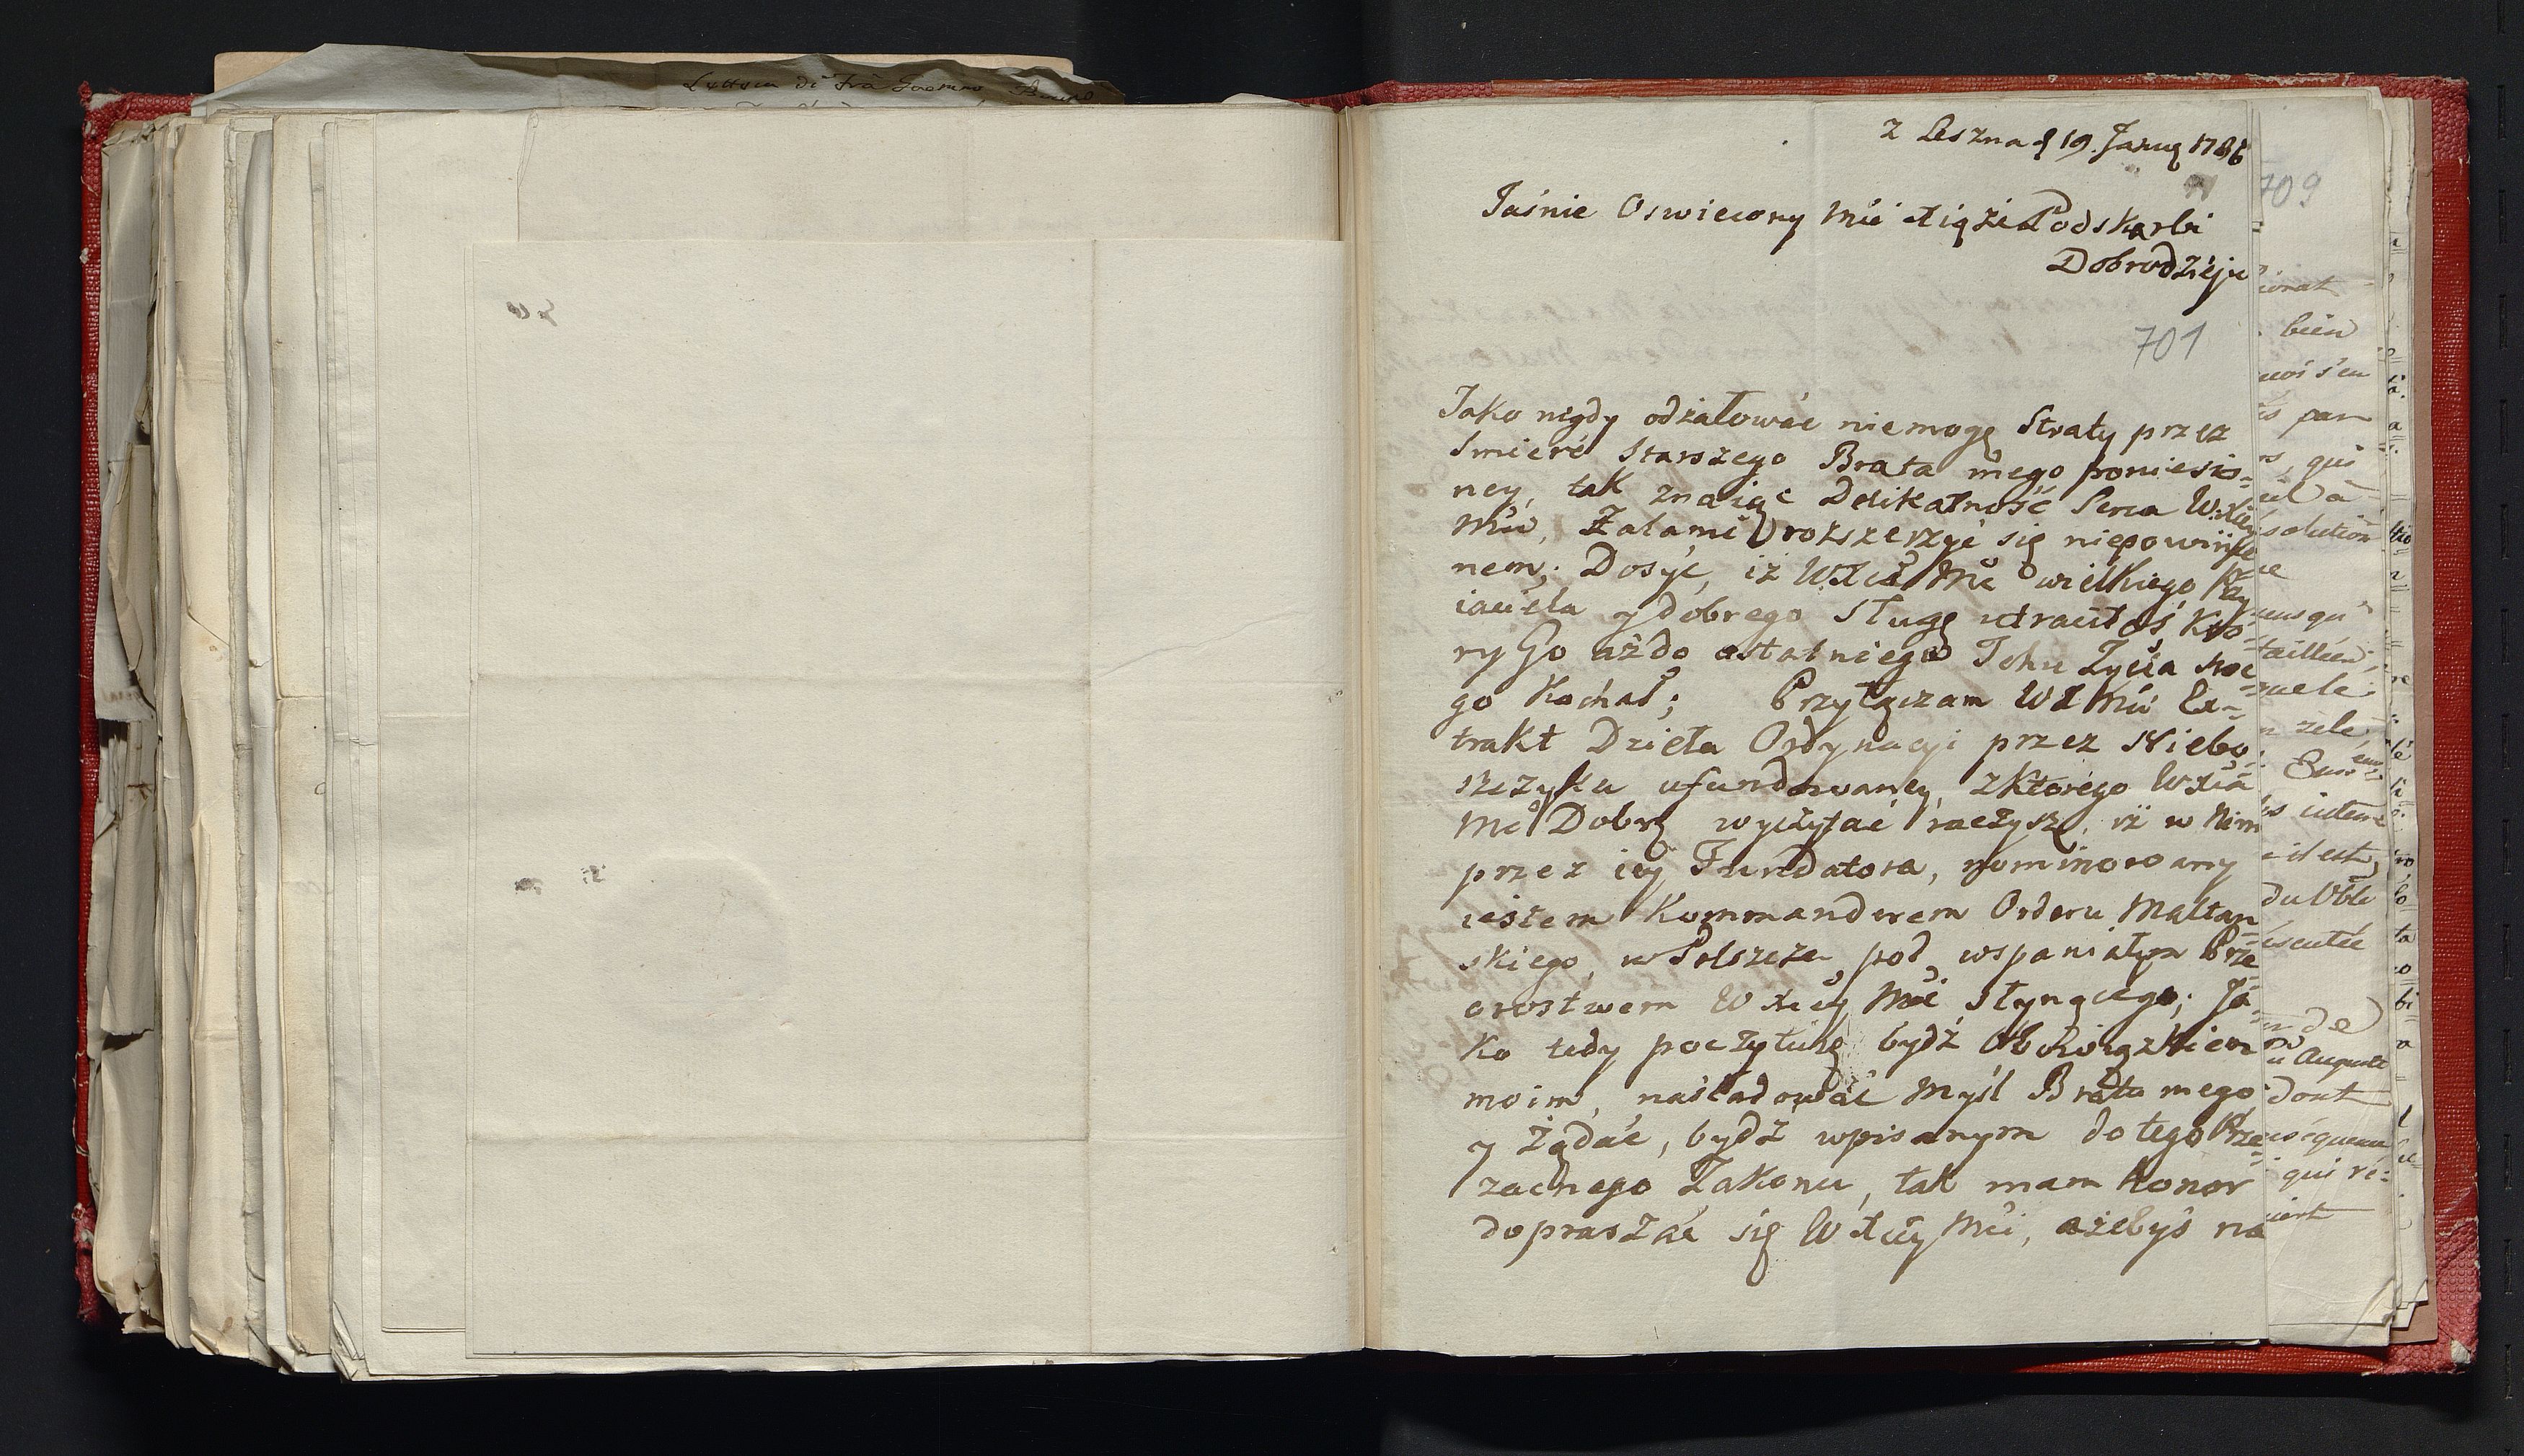 Lettera di Frà
z Leszna d 19. Janua 1786
709
Jaśnie Oswiecony Mci Xiąże Podskarbi
Dobrodzieju
701
Jako nigdy odżałować niemogę Straty przez
Smierć Starszego Brata mego poniesio-
ney, tak znaiąc Delikatność Serca WXcey
Mci, Żalami rozszerzyć się niepowini-
nem; Dosyć, iż WXcia Mć wielkiego Przy
iaciela y dobrego Sługę utraciłeś, Kto-
ry Go aż do ostatniego Tchu Życia swe
go Kochał; Przyłączam WX Mci Ex-
trakt Dzieła Ordynacyi przez Niebo
szczyka ufundowaney, z ktorego WXia
Mć Dobrz wyczytać raczysz, iż w Nim
przez iey Fundatora, nominowany
iestem Kommandorem Orderu Maltan
skiego, w Polszcze, pod wspaniałym Prze
orostwem WXcey Mci słynącego; Ja-
ko tedy poczytuię bydź Obowiązkiem
moim, naśladować Myśl Brata mego
y Żądać, bydź wpisanym do tego Prze
zacnego Zakonu, tak mam honor
dopraszać się WXcey Mci, ażebyś na
bien
s'en
par
qui
solution
zele
il est
de
dont
qui ré-